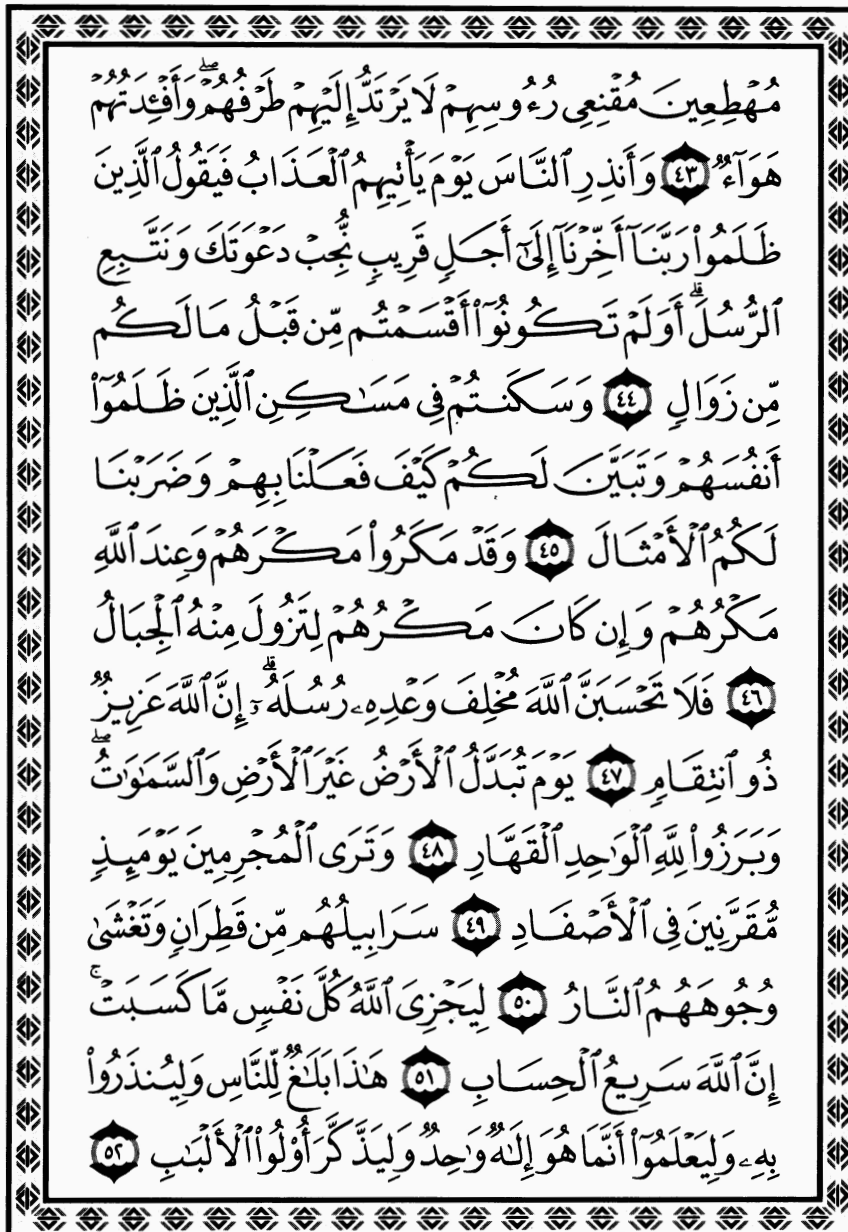 مُهْطِعِينَ مُقْنِعِى رُءُوسِهِمْ لَا يَرْتَدُّ إِلَيْهِمْ طَرْفُهُمْ ۖ وَأَفْـِٔدَتُهُمْ
هَوَآءٌ ٤٣ وَأَنذِرِ ٱلنَّاسَ يَوْمَ يَأْتِيهِمُ ٱلْعَذَابُ فَيَقُولُ ٱلَّذِينَ
ظَلَمُوا۟ رَبَّنَآ أَخِّرْنَآ إِلَىٰٓ أَجَلٍ قَرِيبٍ نُّجِبْ دَعْوَتَكَ وَنَتَّبِعِ
ٱلرُّسُلَ ۗ أَوَلَمْ تَكُونُوٓا۟ أَقْسَمْتُم مِّن قَبْلُ مَا لَكُم
مِّن زَوَالٍ ٤٤ وَسَكَنتُمْ فِى مَسَـٰكِنِ ٱلَّذِينَ ظَلَمُوٓا۟
أَنفُسَهُمْ وَتَبَيَّنَ لَكُمْ كَيْفَ فَعَلْنَا بِهِمْ وَضَرَبْنَا
لَكُمُ ٱلْأَمْثَالَ ٤٥ وَقَدْ مَكَرُوا۟ مَكْرَهُمْ وَعِندَ ٱللَّهِ
مَكْرُهُمْ وَإِن كَانَ مَكْرُهُمْ لِتَزُولَ مِنْهُ ٱلْجِبَالُ
٤٦ فَلَا تَحْسَبَنَّ ٱللَّهَ مُخْلِفَ وَعْدِهِۦ رُسُلَهُۥٓ ۗ إِنَّ ٱللَّهَ عَزِيزٌ
ذُو ٱنتِقَامٍ ٤٧ يَوْمَ تُبَدَّلُ ٱلْأَرْضُ غَيْرَ ٱلْأَرْضِ وَٱلسَّمَـٰوَٰتُ ۖ
وَبَرَزُوا۟ لِلَّهِ ٱلْوَٰحِدِ ٱلْقَهَّارِ ٤٨ وَتَرَى ٱلْمُجْرِمِينَ يَوْمَئِذٍ
مُّقَرَّنِينَ فِى ٱلْأَصْفَادِ ٤٩ سَرَابِيلُهُم مِّن قَطِرَانٍ وَتَغْشَىٰ
وُجُوهَهُمُ ٱلنَّارُ ٥٠ لِيَجْزِىَ ٱللَّهُ كُلَّ نَفْسٍ مَّا كَسَبَتْ ۚ
إِنَّ ٱللَّهَ سَرِيعُ ٱلْحِسَابِ ٥١ هَـٰذَا بَلَـٰغٌ لِّلنَّاسِ وَلِيُنذَرُوا۟
بِهِۦ وَلِيَعْلَمُوٓا۟ أَنَّمَا هُوَ إِلَـٰهٌ وَٰحِدٌ وَلِيَذَّكَّرَ أُو۟لُوا۟ ٱلْأَلْبَـٰبِ ٥٢